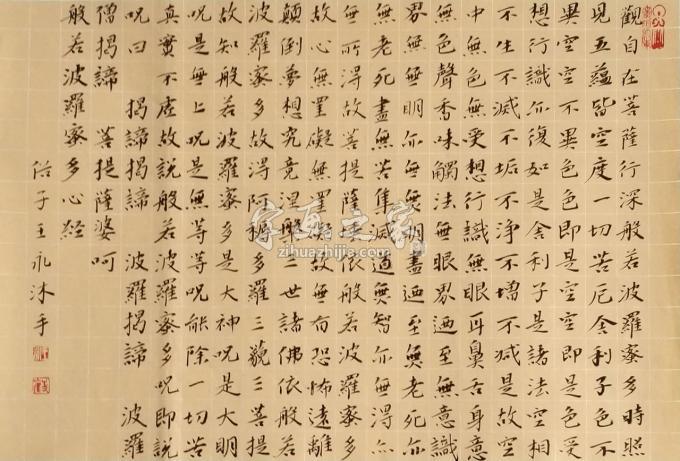 觀自在菩薩行深般若波羅蜜多時照
見五蘊皆空度一切苦厄舍利子色不
異空空不異色色即是空空即是色受
想行識亦復如是舍利子是諸法空相
不生不滅不垢不淨不增不減是故空
中無色無受想行識無眼耳鼻舌身意
無色聲香味觸法無眼界迺至無意識
界無無明亦無無明盡迺至無老死亦
無老死盡無苦集滅道無智亦無得以
無所得故菩提薩埵依般若波羅蜜多
故心無罣礙無罣礙故無有恐怖遠離
顛倒夢想究竟涅槃三世諸佛依般若
波羅蜜多故得阿耨多羅三藐三菩提
故知般若波羅蜜多是大神呪是大明
呪是無上呪是無等等呪能除一切苦
真實不虛故說般若波羅蜜多呪即說
呪曰 揭諦揭諦 波羅揭諦 波羅
僧揭諦 菩提薩婆呵
般若波羅蜜多心經
子王永沐手
字画之家
zihuazhijia.com